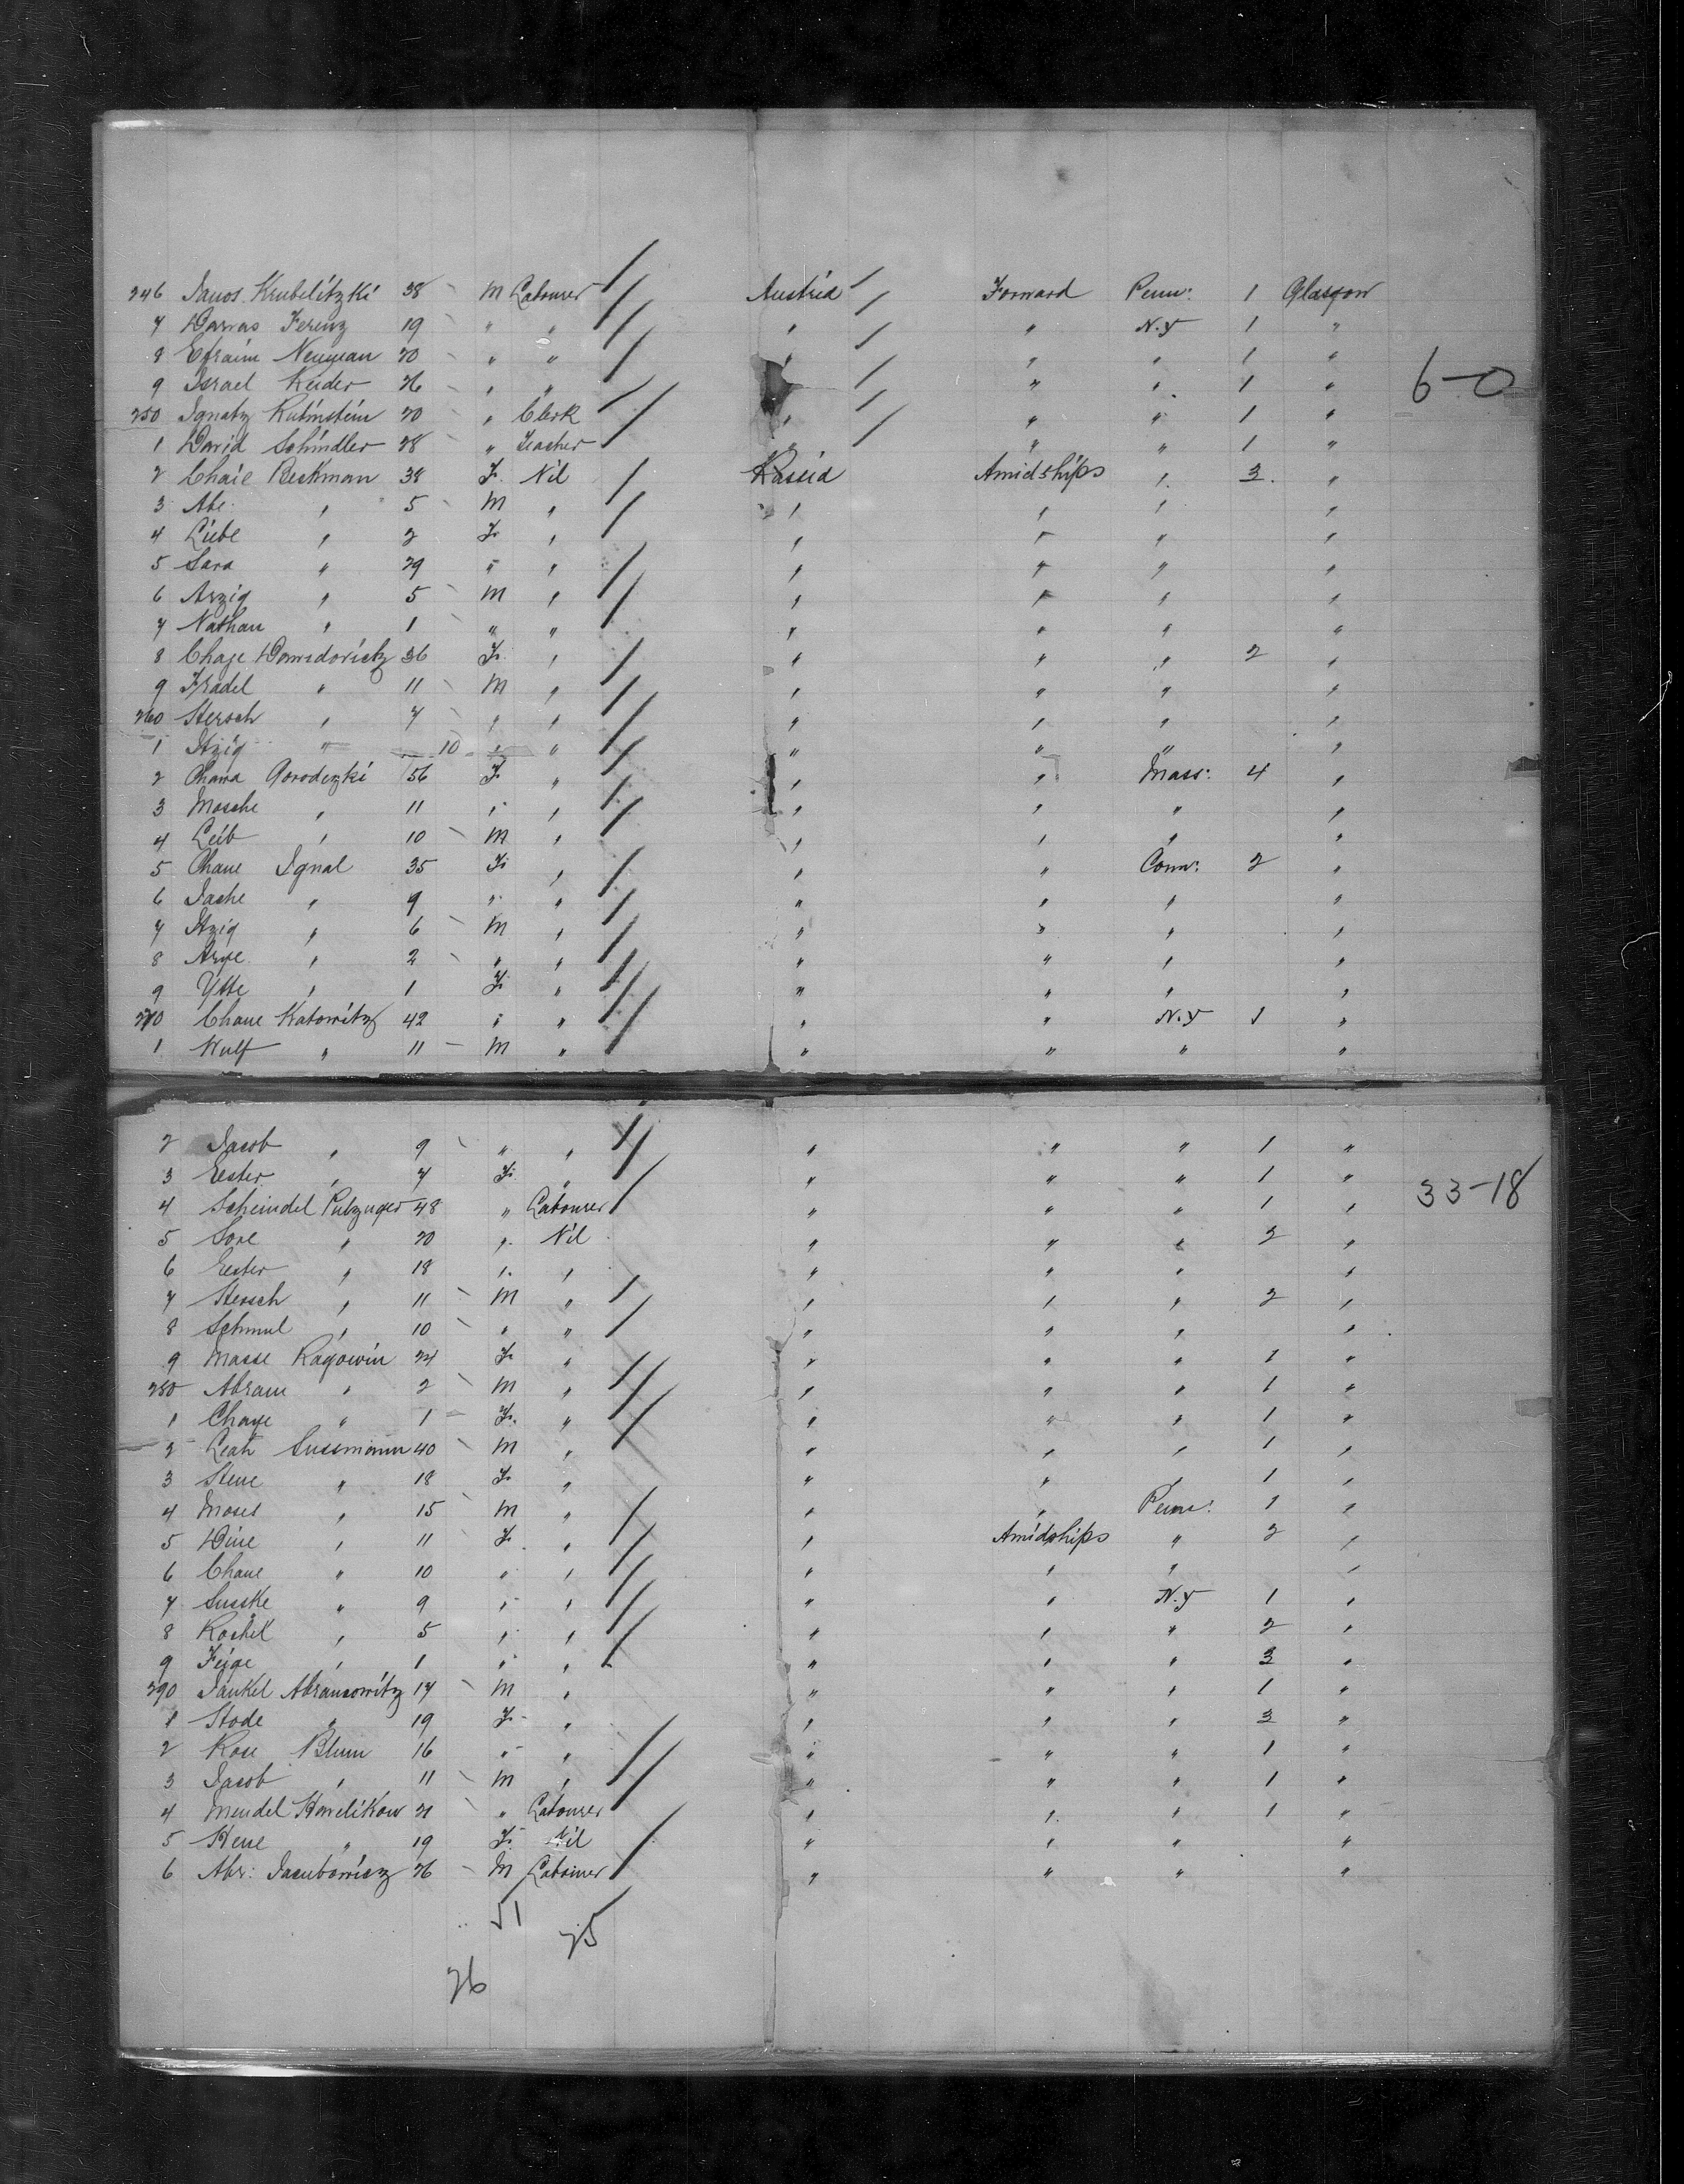 246 Janos Krubelitzki 38 - M Labourer / Austria / Forward Penn: 1 Glasgow
7 Darvas Ferenz 19 - " " / " / " N.Y 1 "
8 Efraim Neuman 20 - " " / " / " " 1 "
9 Israel Keider 26 - " " / " / " " 1 "
6-0
250 Ignatz Rubinstein 20 " Clerk / " / " " 1 "
1 David Schindler 28 - " Teacher / " / " " 1 "
2 Chaie Beckman 38 F. Nil / Russia Amidships " 3 "
3 Abe " 5 - M " / " " " "
4 Liebe " 2 F. " " " " "
5 Sara " 29 " " / " " " "
6 Arzig " 5 - M " / " " " "
7 Nathan " 1 - " " " " " "
8 Chaje Dawidovictz 36 F. " / " " " 2 "
9 Fradel " 11 - M " / " " " "
260 Hersch " 7 - " " / " " " "
1 Itzig " 10 " " / " " " "
2 Chana Gorodezki 56 F. " / " " Mass: 4 "
3 Mosche " 11 " " / " " " "
4 Leib " 10 - M " " " " "
5 Chane Ignal 35 F. " / " " Conn: 2 "
6 Jache " 9 " " / " " " "
7 Itzig " 6 - M " / " " " "
8 Arye " 2 - " " / " " " "
9 Ytte " 1 F. " / " " " "
270 Chane Katowitz 42 " " / " " N.Y 1 "
1 Wulf " 11 - M " " " " "
2 Jacob " 9 - " " / " " " 1 "
3 Eester " 7 F. " " " " 1 "
4 Scheindel 48 " Labourer / " " " 1 "
33-18
5 Sore " 20 " Nil " " " 2 "
6 Eester " 18 " " " " " "
7 Hersch " 11 - M " / " " " 2 "
8 Schmul " 10 - " " / " " " "
9 Masse Ragowin 24 F. " / " " " 1 "
280 Abram " 2 - M " / " " " 1 "
1 Chaye " 1 - F. " / " " " 1 "
2 Leah Sussmann 40 - M " " " " 1 "
3 Hene " 18 F. " " " " 1 "
4 Moses " 15 - M " / " " Penn: 1 "
5 Dine " 11 F. " / " Amidships " 2 "
6 Chane " 10 " " / " " " "
7 Susske " 9 " " / " " N.Y 1 "
8 Roshel " 5 " " / " " " 2 "
9 Feige " 1 " " " " " 3 "
290 Jankel Abramowitz 17 - M " " " " 1 "
1 Hode " 19 F. " " " " 3 "
2 Rose Blum 16 " " / " " " 1 "
3 Jacob " 11 - M " / " " " 1 "
4 Mendel 21 - " Labourer " " " 1 "
5 Hene " 19 F. Nil / " " " "
6 Abr: Jacubowicz 26 - M Labourer " " " "
51
25
26